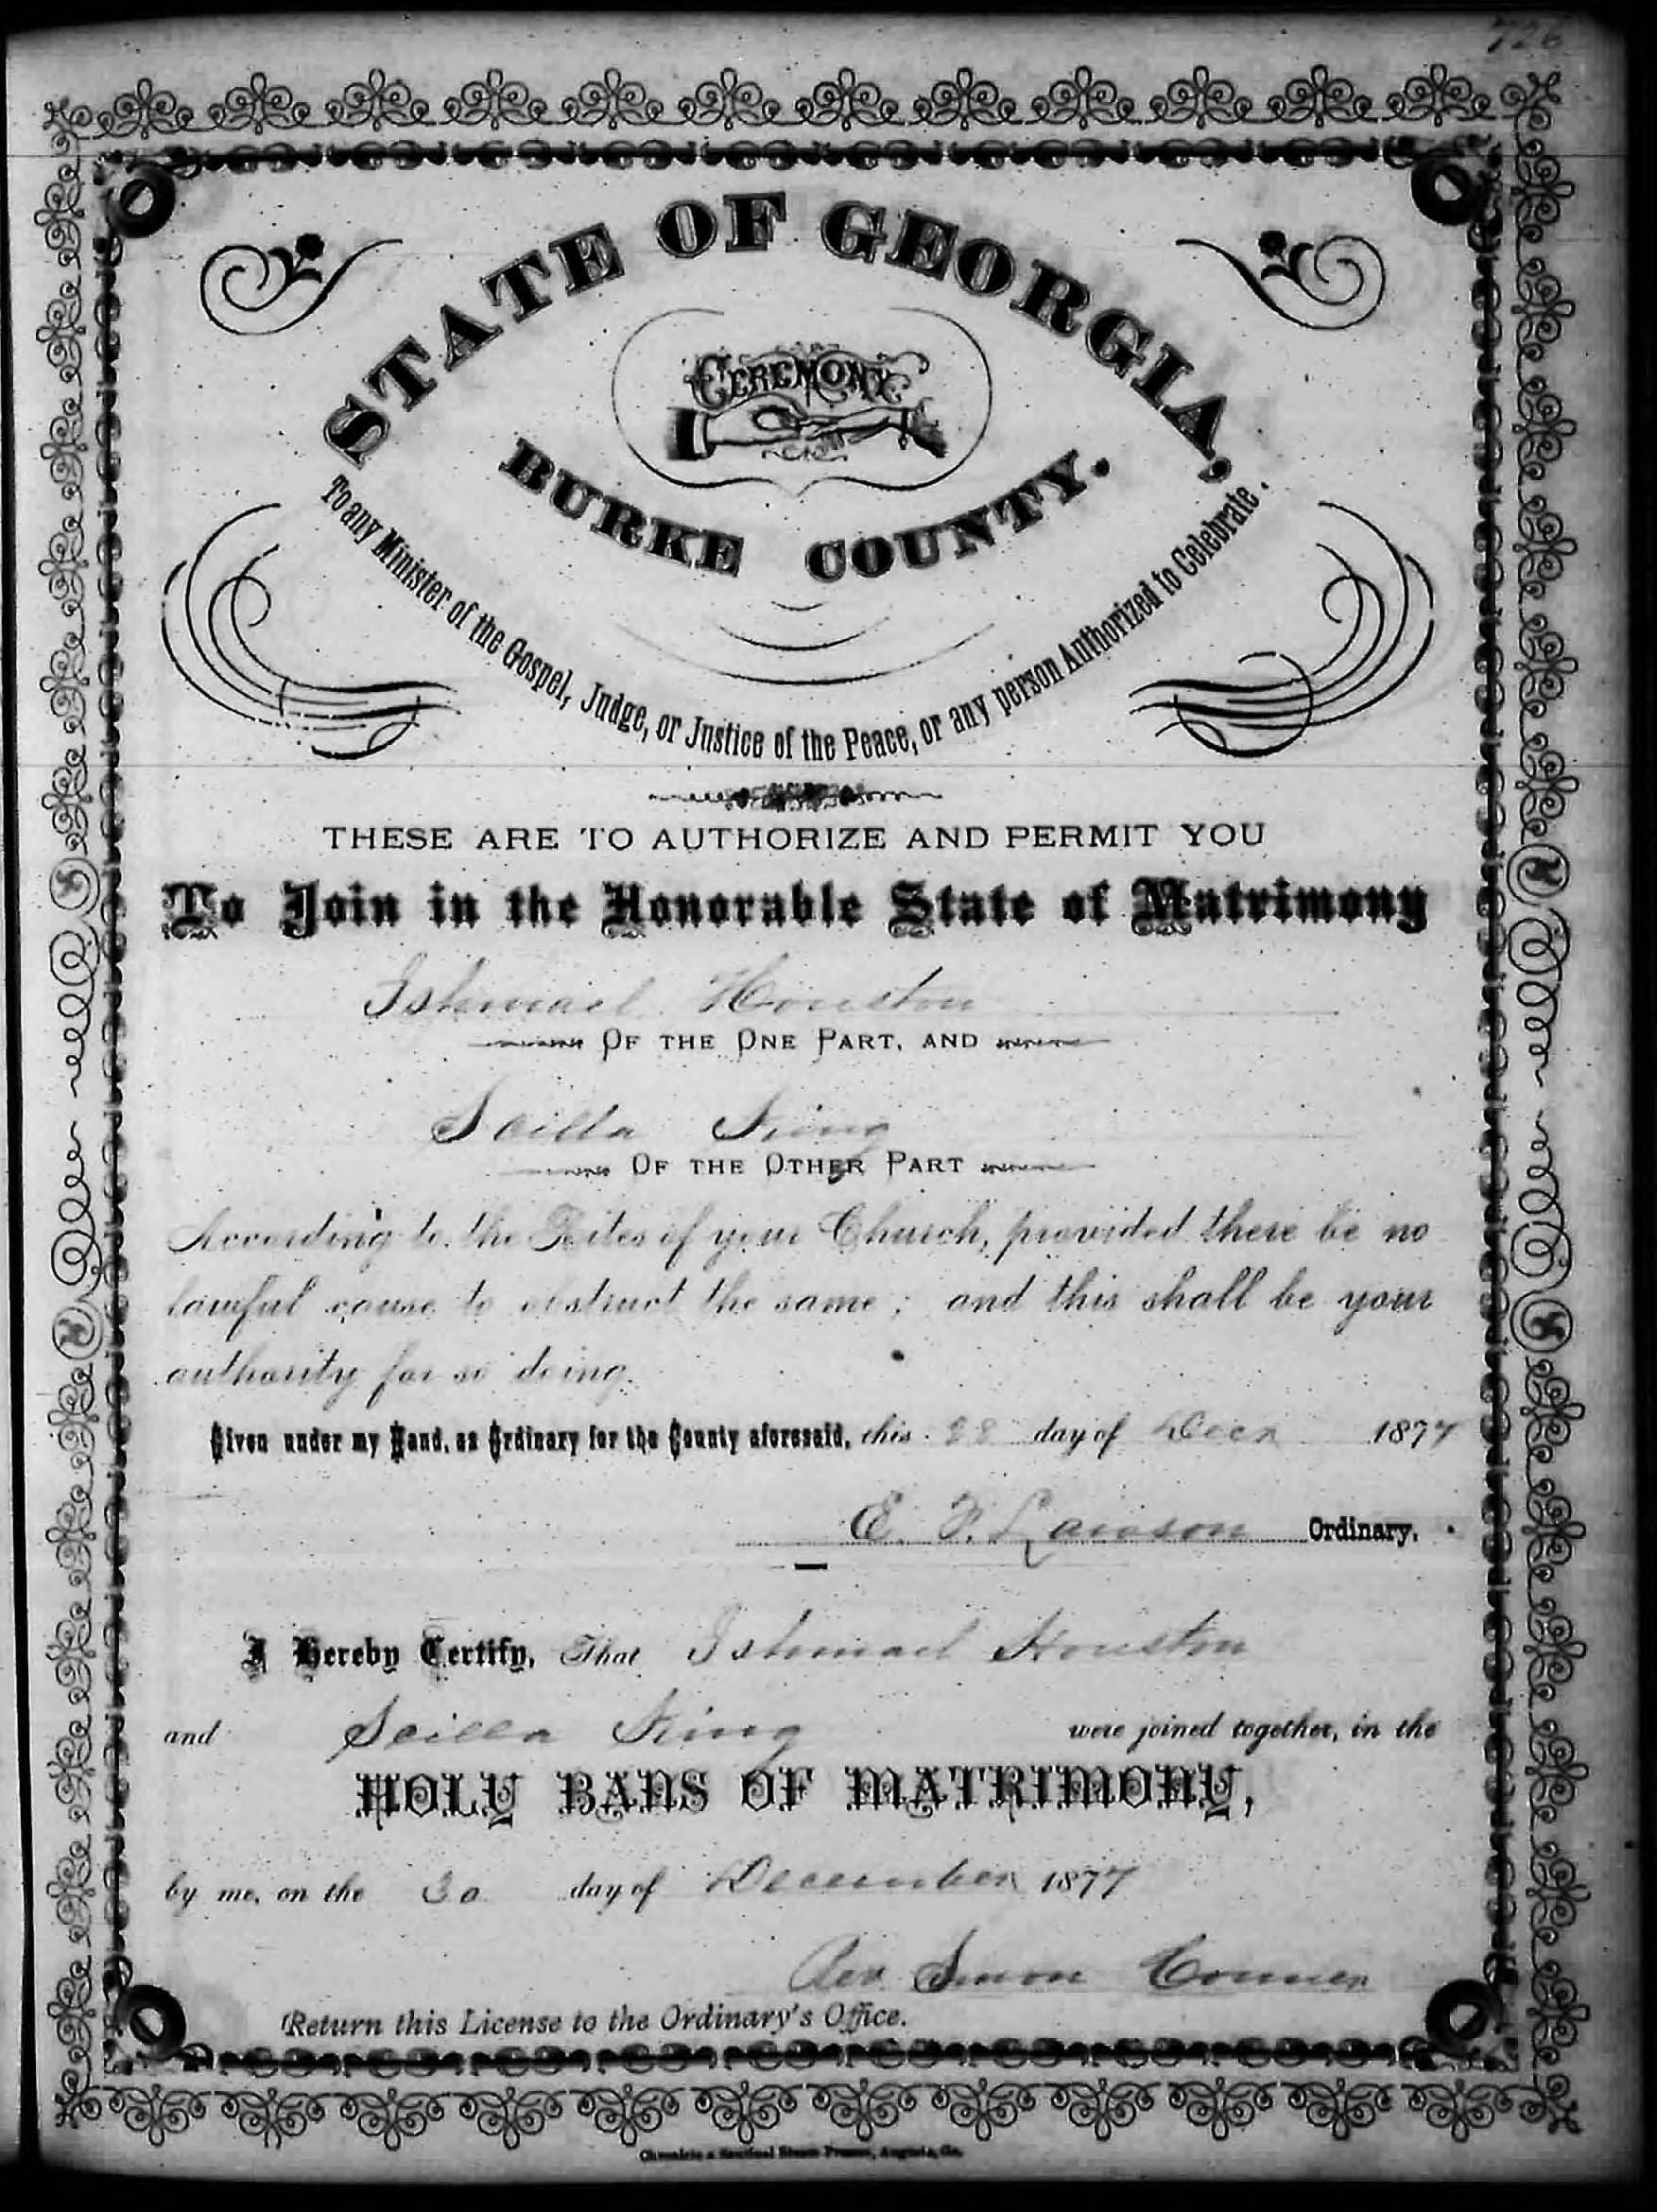 726
STATE OF GEORGIA,
CEREMONY
BURKE COUNTY.
To any Minister of the Gospel, Judge, or Justice of the Peace, or any person Authorized to Celebrate.
THESE ARE TO AUTHORIZE AND PERMIT YOU
To Join in the Honorable State of Matrimony
Ishmael Houston
OF THE ONE PART, AND
Scilla King
OF THE OTHER PART
According to the Rites of your Church, provided there be no
lawful cause to obstruct the same; and this shall be your
authority for so doing.
Given under my Hand, as Ordinary for the County aforesaid, this 28 day of Decr 1877
E. F. Lawson Ordinary.
I Hereby Certify, That Ishmael Houston
and Scilla King were joined together, in the
HOLY BANS OF MATRIMONY,
by me, on the 30 day of December 1877
Rev Simon Conner
Return this License to the Ordinary's Office.
Chronicle & Sentinel Steam Presses, Augusta, Ga.